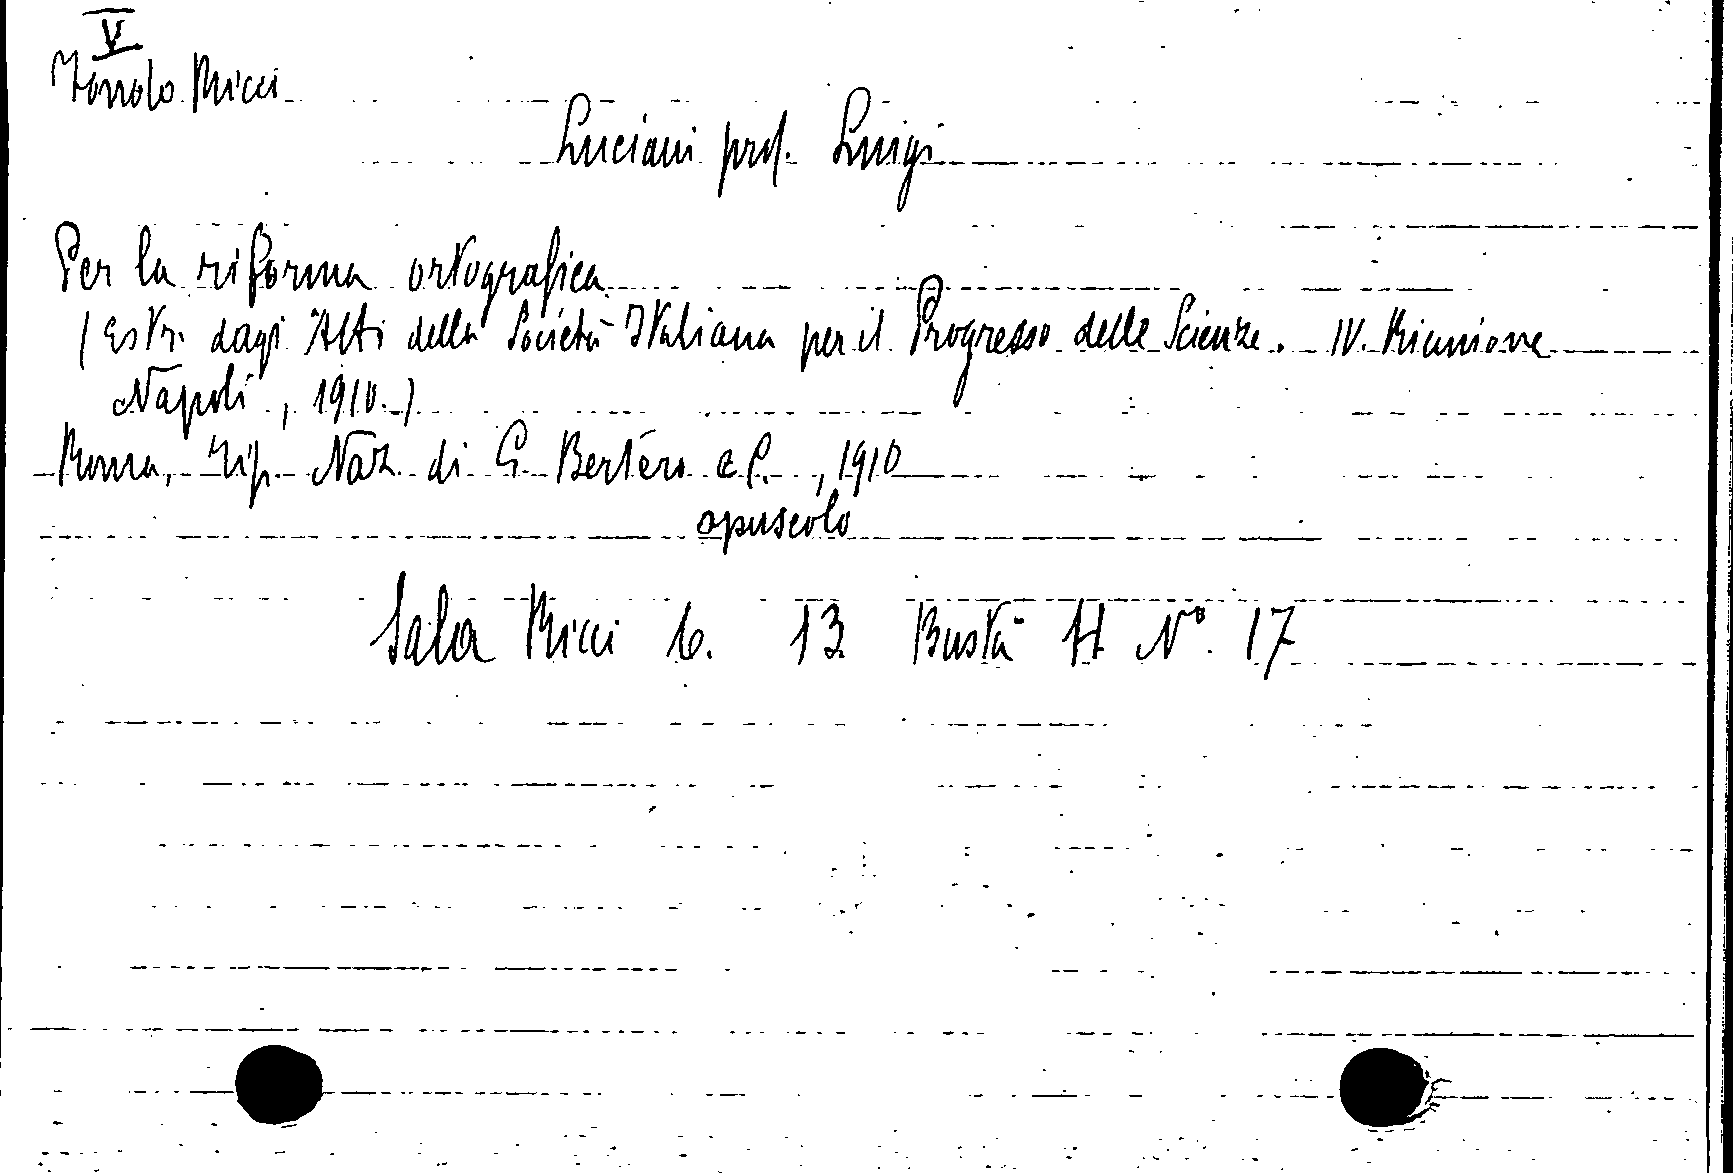 V
Fondo Ricci
Luciani prof. Luigi
Per la riforma ortografica
(Estr. dagi Atti della Società Italiana per il Progresso delle Scienze. IV. Riunione
Napoli, 1910.)
Roma, Tip. Naz. di G. Bertero e C., 1910
opuscolo
Sala Ricci 6. 13. Busta H N°. 17